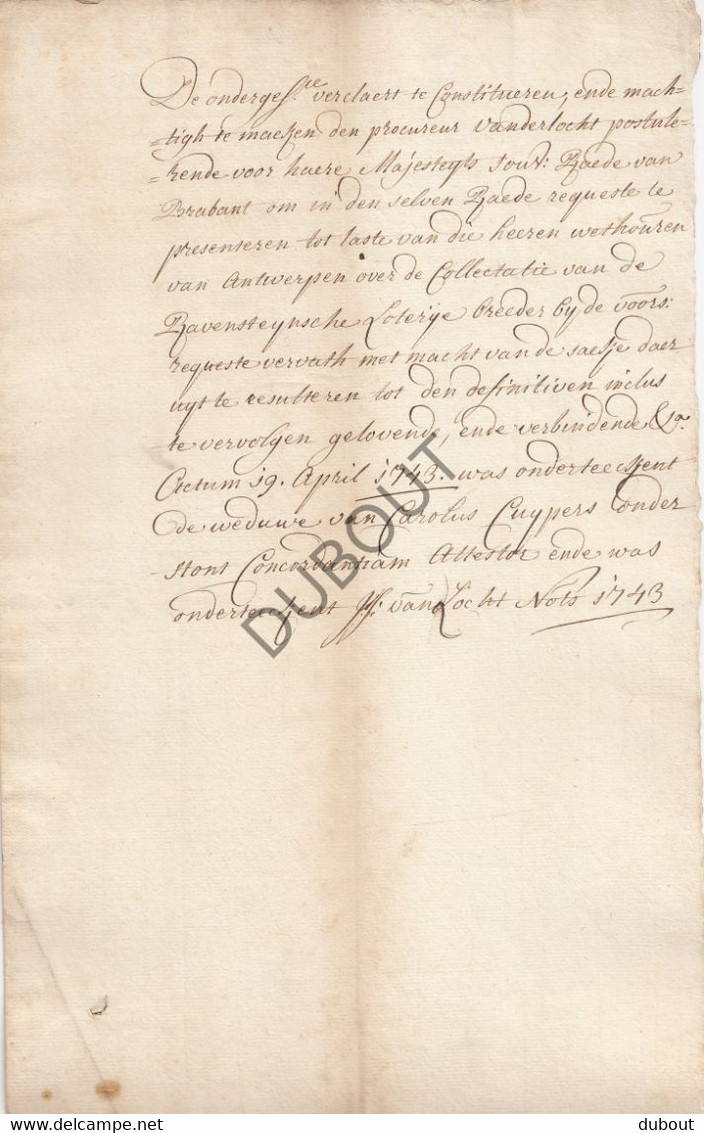 De onderges.ne verclaert te Constitueren, ende mach-
=tigh te maeken den procureur vanderlocht postule-
=rende voor haere Majesteyts souv: Raede van
Brabant om in den selven Raede requeste te
presenteren tot laste van die heeren wethouren
van Antwerpen over de Collectatie van de
Ravensteynsche Loterije breeder by de voors:
requeste vervath met macht van de saeke daer
uyt te resulteren tot den definitiven inclus
te vervolgen gelovende, ende verbindende &a.
Actum 19. April 1743. was onderteekent
de weduwe van Carolus Cuypers onder
stont Concordantiam Attestor ende was
onderteekent van Locht Nots 1743
DUBOUT
delcampe.net
dubout